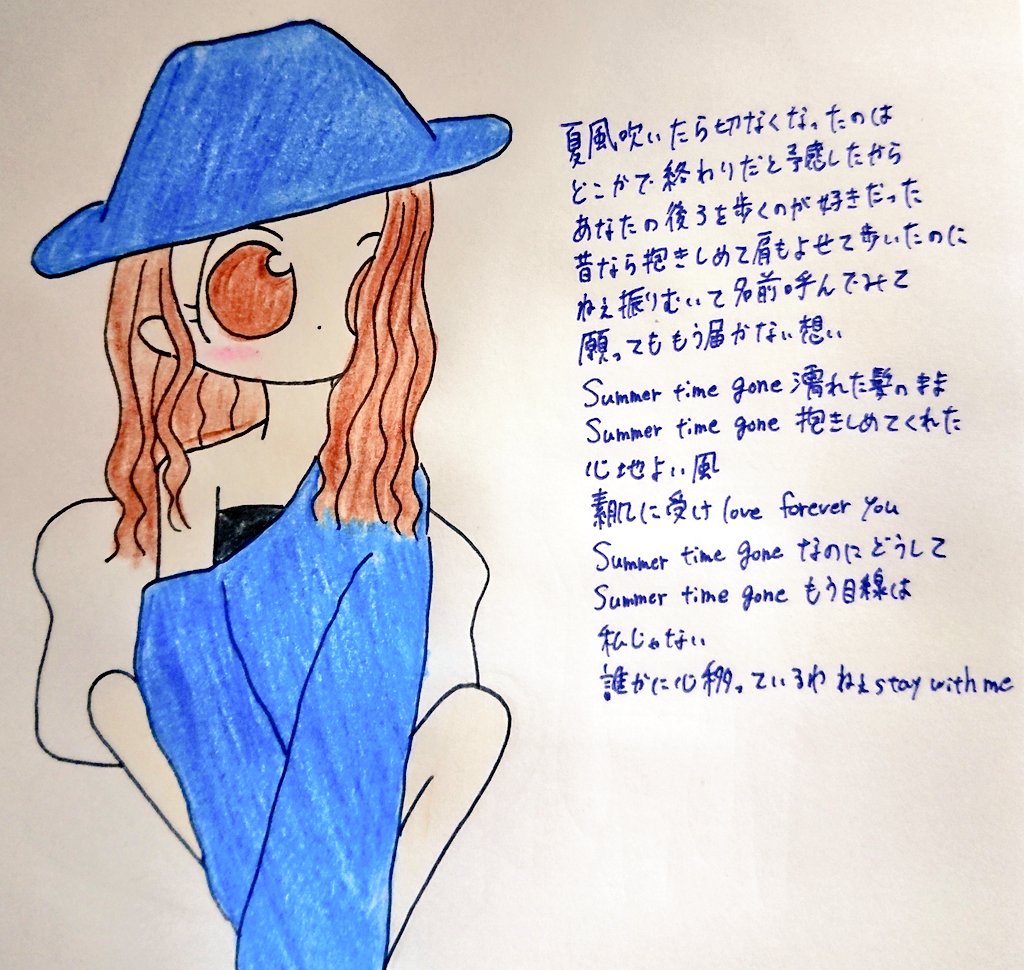 夏風吹いたら切なくなったのは
どこかで終わりだと予感したから
あなたの後ろを歩くのが好きだった
昔なら抱きしめて肩もよせて歩いたのに
ねぇ振りむいて名前呼んでみて
願っても もう届かない想い
Summer time gone 濡れた髪のまま
Summer time gone 抱きしめてくれた
心地よい風
素肌に受け love forever you
Summer time gone なのにどうして
Summer time gone もう目線は
私じゃない
誰かに心移っているわ ねぇ stay with me